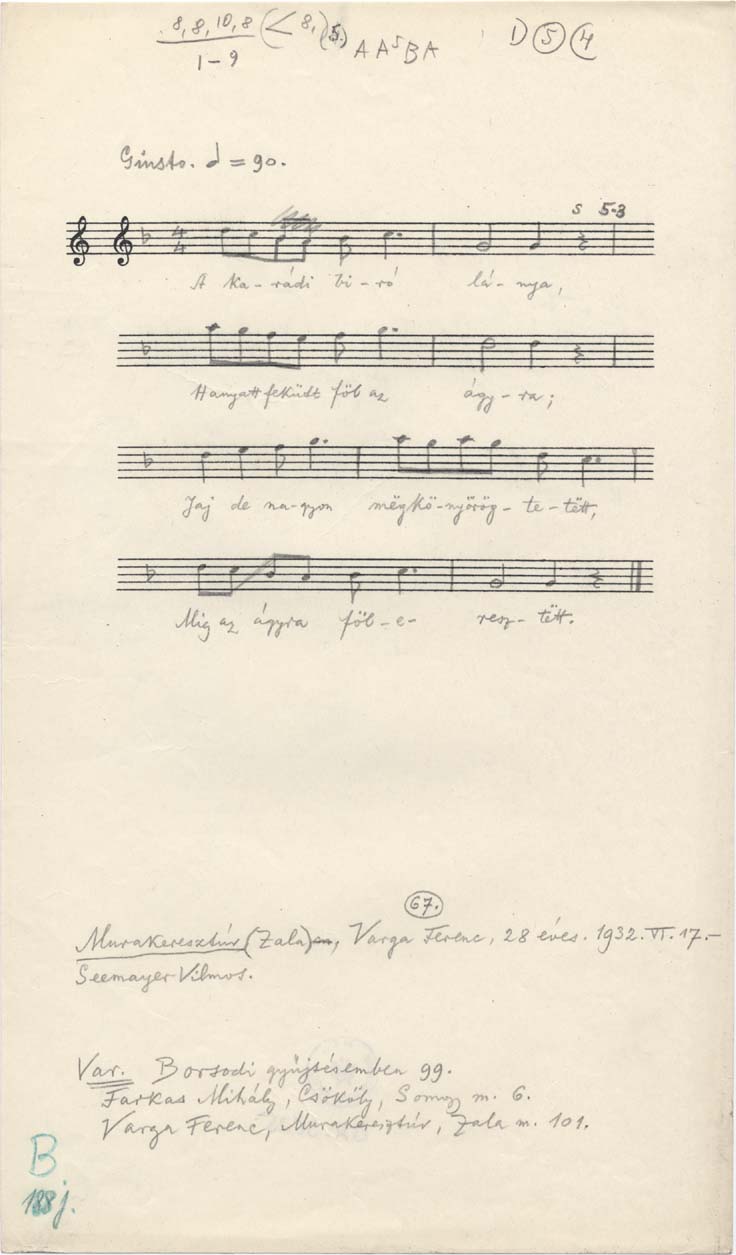 8, 8, 10, 8 (< 8, (5.) A A⁵ B A 1) ⑤ ④
1 – 9
Giusto. = 90.
s 5-3
4
4
A ka – rádi bi – ró lá – nya,
Hanyatt feküdt föl az ágy – ra;
Jaj de na – gyon mëgkö – nyörög – te – tëtt,
Mig az ágyra föl – e – resz – tëtt.
67.
Murakeresztúr (Zala), Varga Ferenc, 28 éves. 1932. VI. 17. –
Seemayer Vilmos.
Var. Borsodi gyüjtésemben 99.
Farkas Mihály, Csököly, Somogy m. 6.
Varga Ferenc, Murakeresztúr, Zala m. 101.
B
188j.